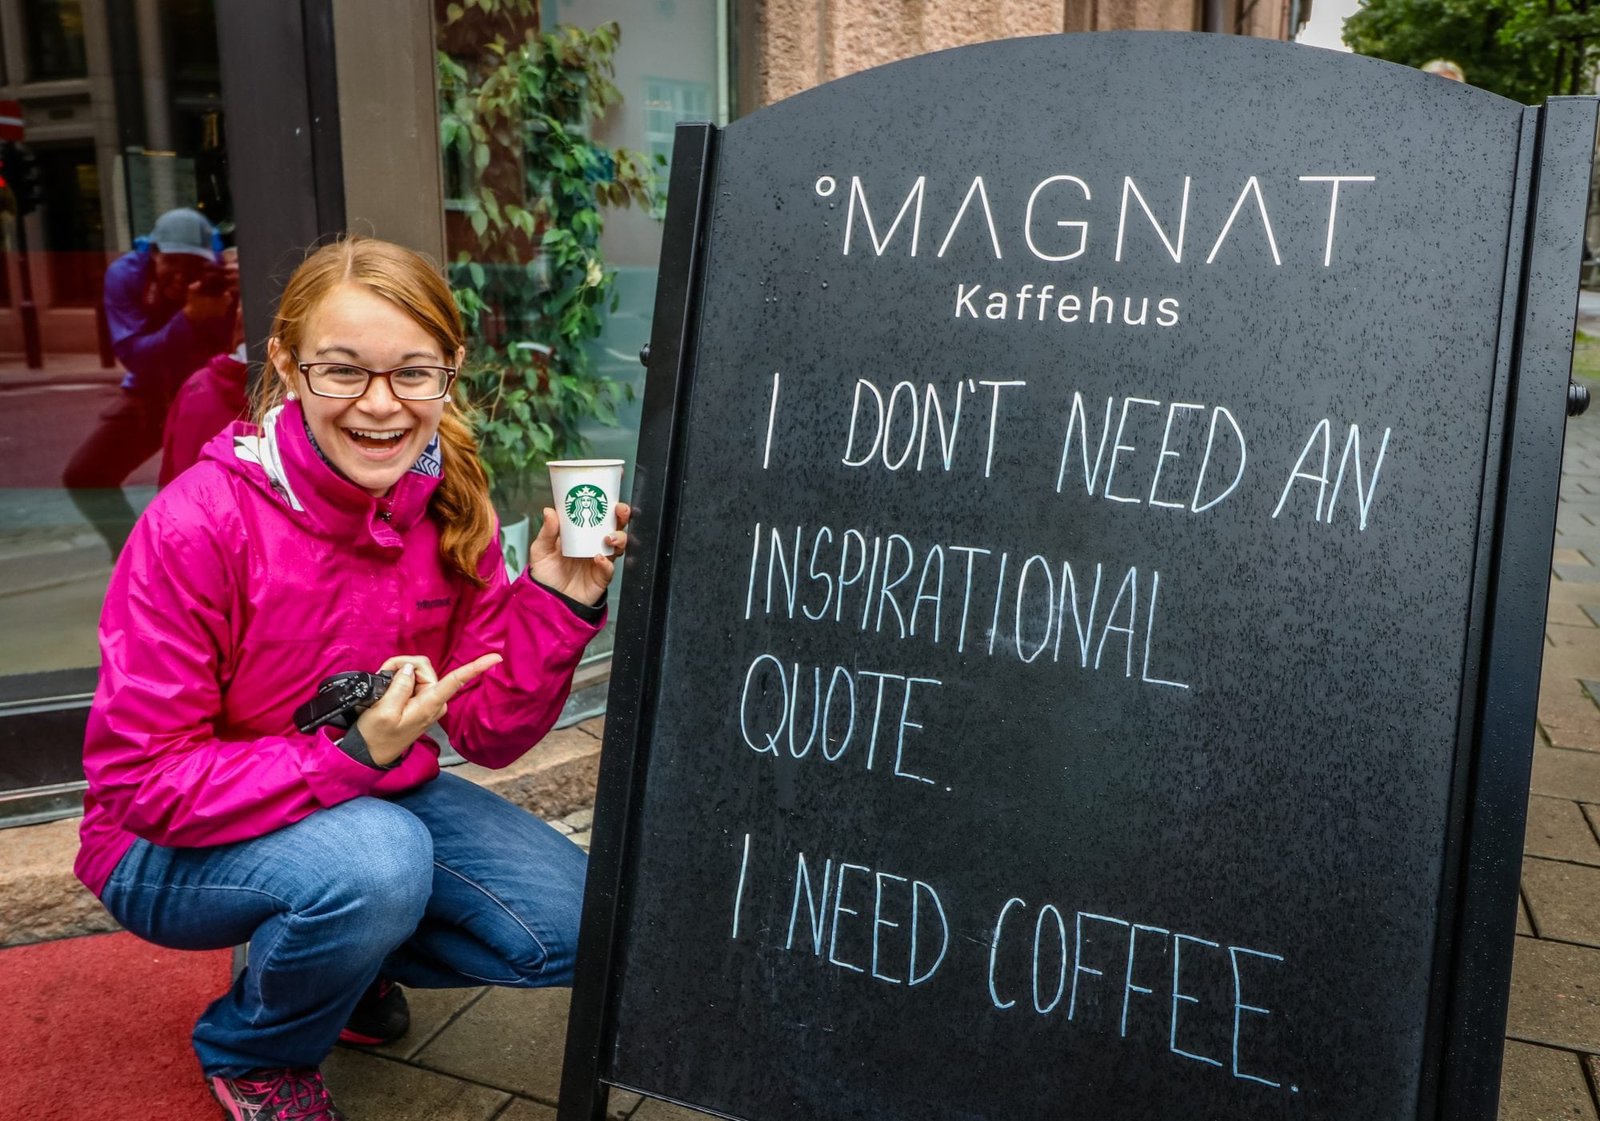 °MAGNAT
Kaffehus
I DON'T NEED AN
INSPIRATIONAL
QUOTE.
I NEED COFFEE.